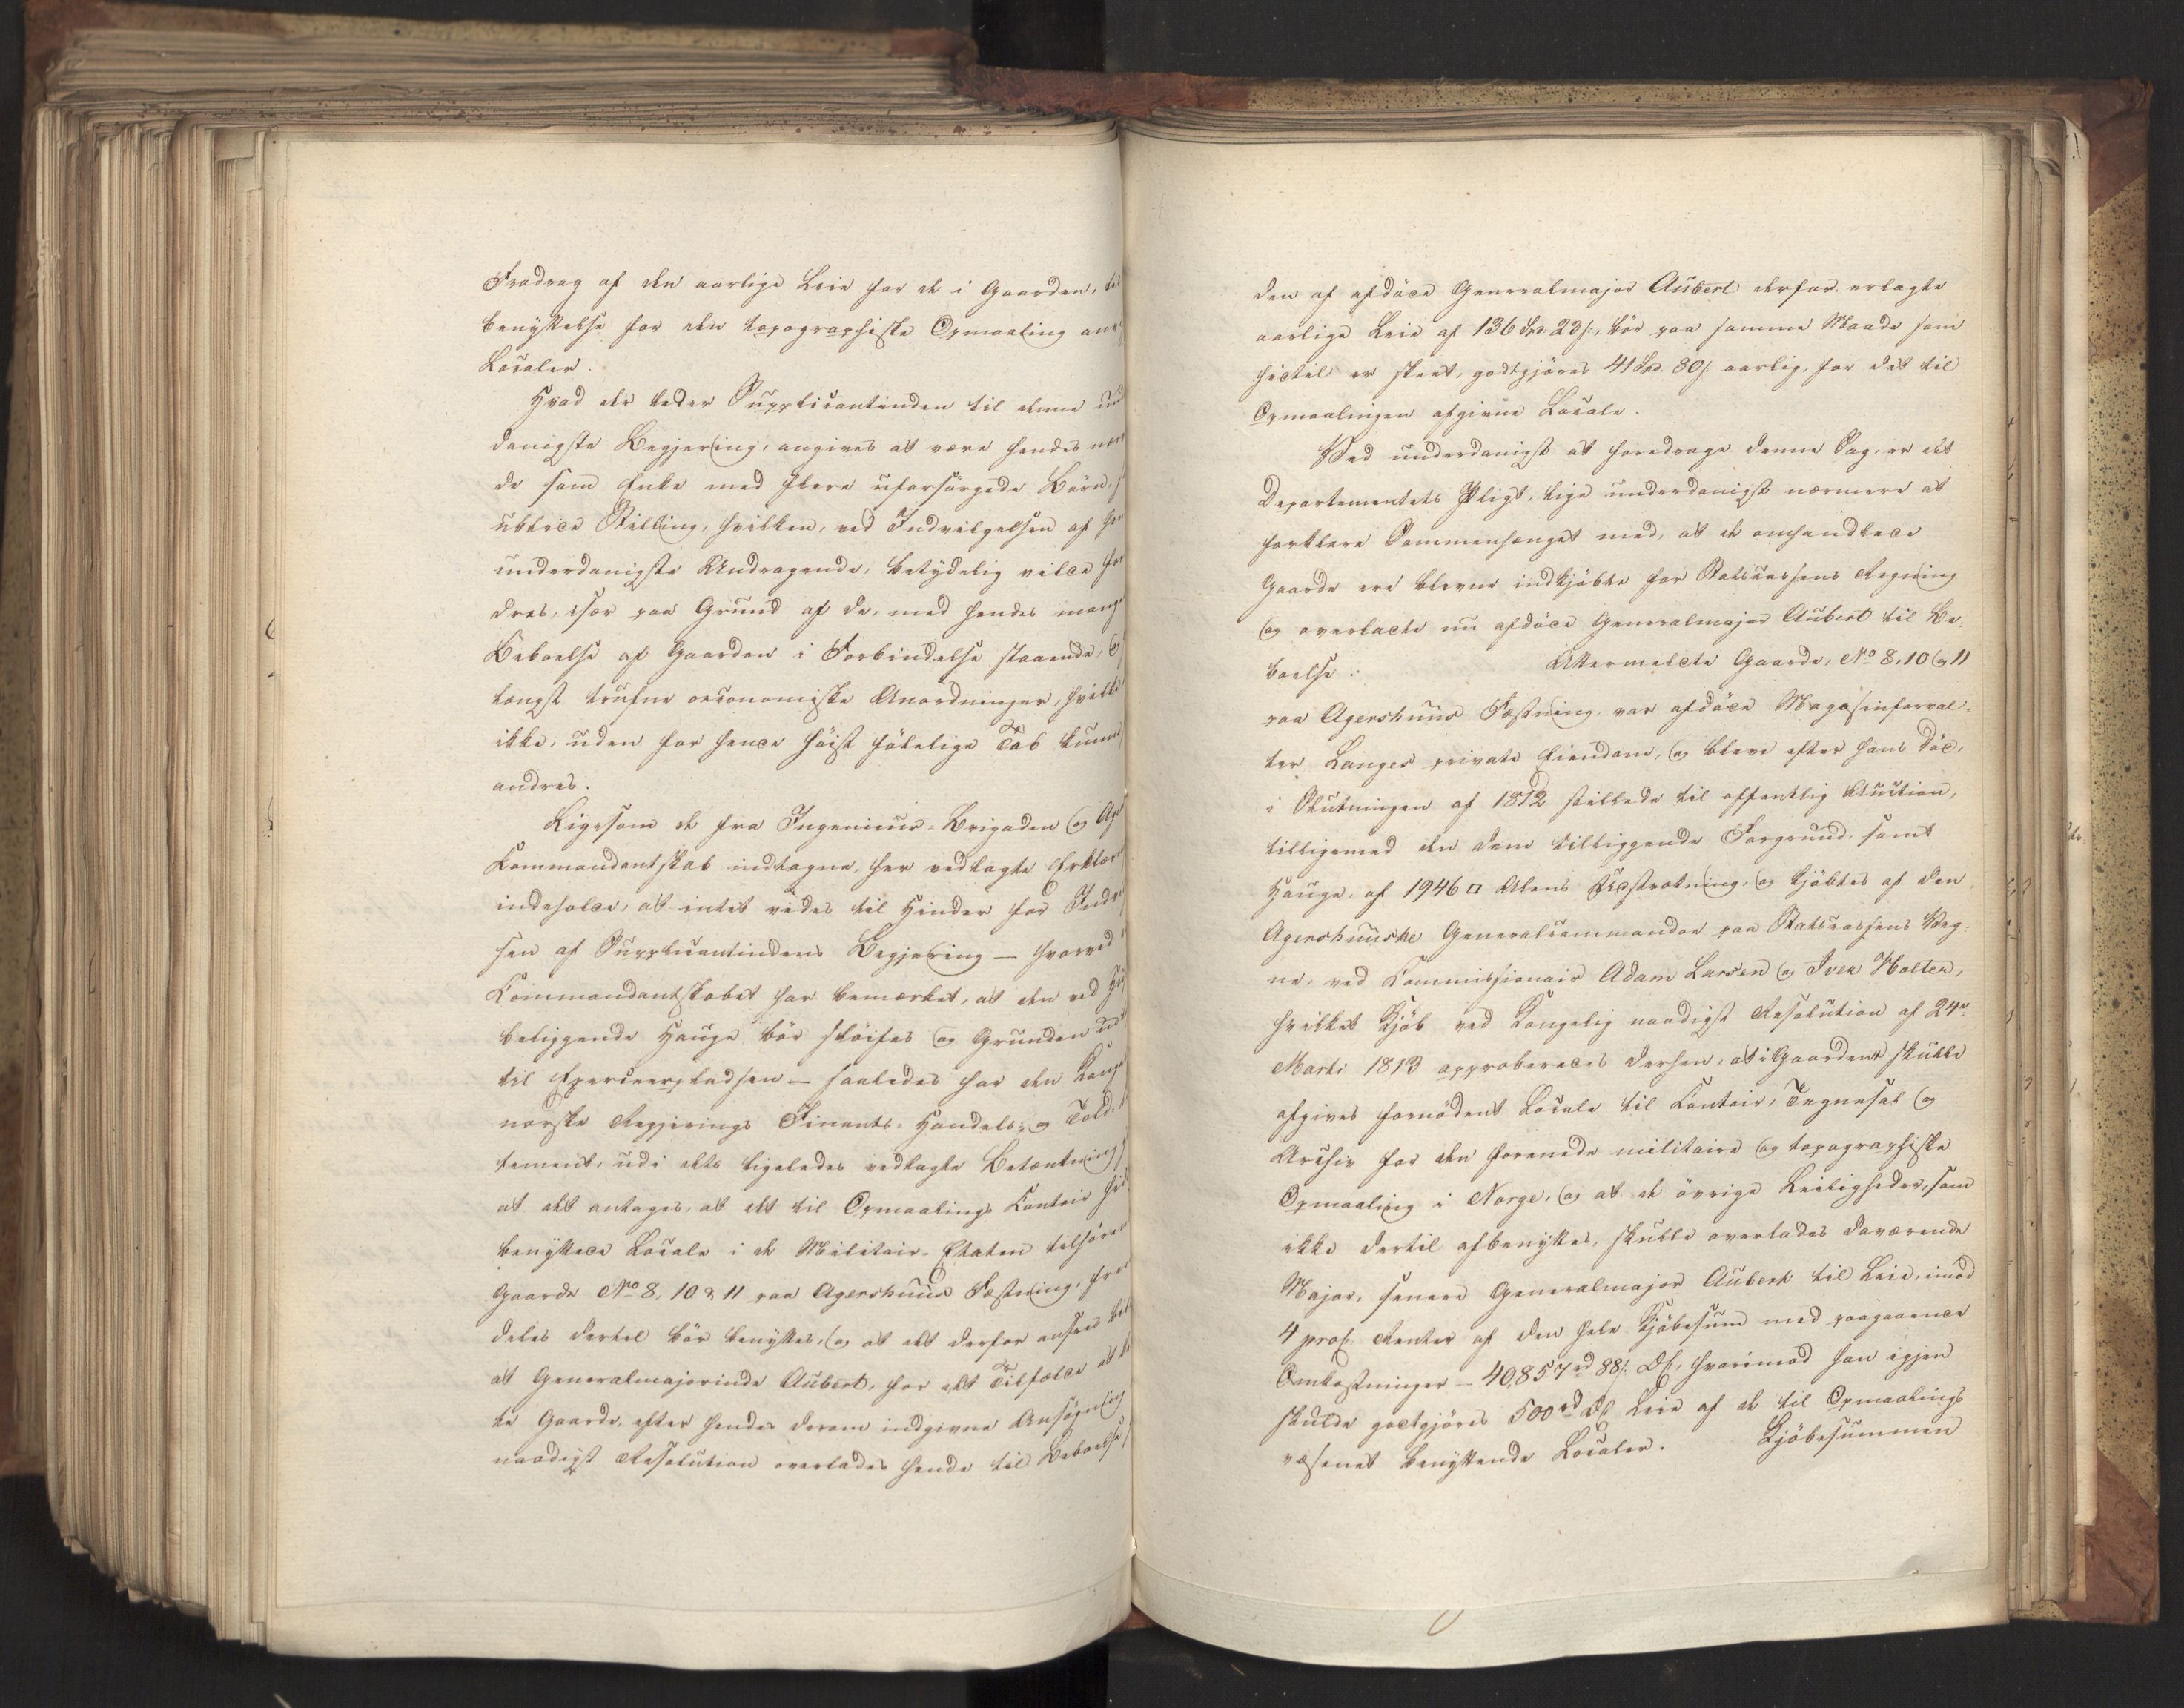 Fradrag af den aarlige Leie for de i Gaarden, til
benyttelse for den topographiske Opmaaling anv
Localer.
Hvad der leder Supplicantinden til denne und
danigste Begjering, angives at være hendes nær
de som Enke med flere uforsörgede Börn,
ublide Stilling, hvilken, ved Indvilgelsen af hen
underdanigste Andragende, betydelig vilde for
dres, især paa Grund af de, med hendes mange
Beboelse af Gaarden i Forbindelse staaende, og
langst trufne oeconomiske Anordninger, hvilke
ikke, uden for hende höist fölelige Tab kunne
andres.
Ligesom de fra Ingenieur-Brigaden og Age
Kommandantskab indtagne, her vedlagte Erklær
indeholde, at intet vides til Hinder for Indv
sen af Supplicantindens Begjering – hvorved
Kommandantskabet har bemærket, at den ved
beliggende Hauge bör slöifes og Grunden ud
til Exerceerpladsen – saaledes har den Konge
norske Regjerings Finants- Handels- og Told-
tement, udi dets ligeledes vedlagte Betænkning
at det antages, at det til Opmaalings Contoir
benyttede Locale i de Militair-Etaten tilhören
Gaarde No 8, 10 & 11 paa Agershuus Fæstning, frem
deles dertil bör benyttes, og at det derfor ansees
at Generalmajorinde Aubert, for det Tilfælde at
te Gaarde, efter hendes derom indgivne Ansögning
naadigst Resolution overlades hende til Beboelse
den af afdöde Generalmajor Aubert derfor erlagte
aarlige Leie af 136 Spd. 23 s., bör paa samme Maade som
hidtil er skeet, godtgjöres 41 Spd. 80 s. aarlig, for det til
Opmaalingen afgivne Locale.
Ved underdanigst at foredrage denne Sag, er det
Departementets Pligt, lige underdanigst nærmere at
forklare Sammenhænget med, at de omhandlede
Gaarde ere blevne indkjöbte for Statscassens Regning
og overladte nu afdöde Generalmajor Aubert til Be-
boelse. Altermeldte Gaarde, No 8, 10 og 11
paa Agershuus Fæstning, var afdöde Magasinforval-
ter Langes private Eiendom, og bleve efter hans Död,
i Slutningen af 1812 stillede til offentlig Auction,
tilligemed den dem tilliggende Forgrund, samt
Hauge, af 1946 □ Alens Udstrækning, og kjöbtes af den
Agershuuske Generalcommando paa Statscassens Veg-
ne, ved Commissionair Adam Larsen og Iver Holter,
hvilket Kjöb ved Kongelig naadigst Resolution af 24de
Marti 1813 approberedes derhen, at i Gaarden skulle
afgives fornödent Locale til Contoir, Tegnesal og
Archiv for den forenede militaire og topographiske
Opmaaling i Norge, og at de övrige Leiligheder, som
ikke dertil afbenyttes, skulle overlades daværende
Major, senere Generalmajor Aubert til Leie, imod
4 proC. Renter af den hele Kjöbesum med paagaaende
Omkostninger – 40,857 rd 88 s. DC., hvorimod han igjen
skulde godtgjöres 500 rd DC Leie af de til Opmaalings
væsenet benyttende Localer. Kjöbesummen